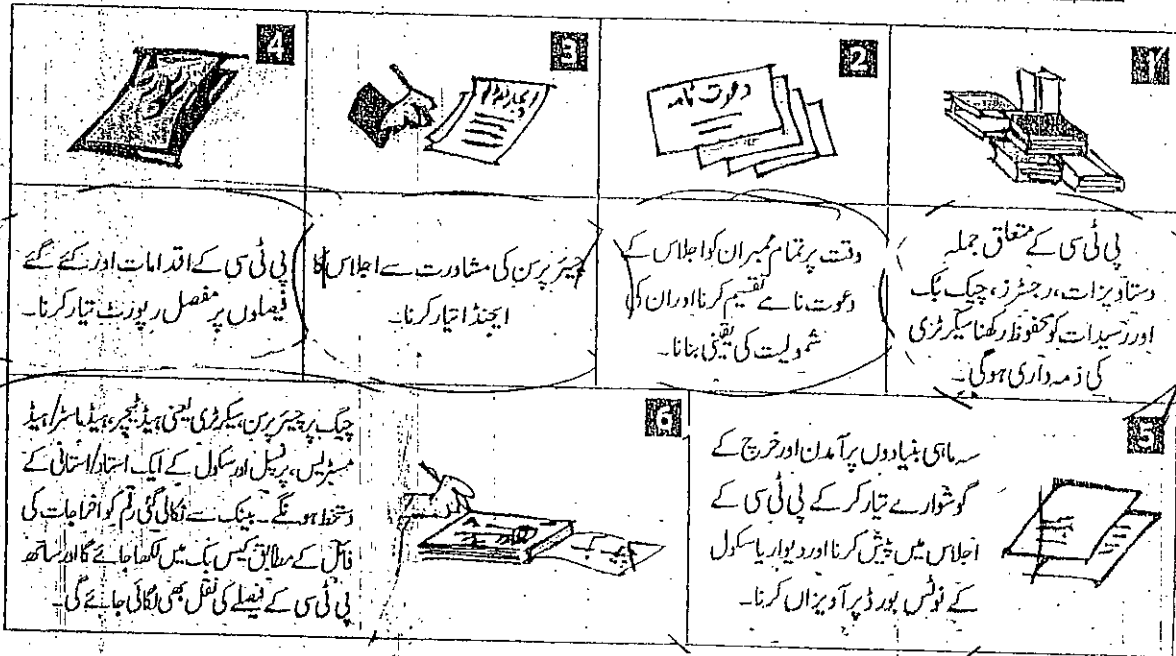 1
پی ٹی سی کے متعلق جملہ
دستاویزات، رجسٹرز، چیک بک
اور رسیدات کو محفوظ رکھنا سیکرٹری
کی ذمہ داری ہوگی۔
2
دعوت نامہ
وقت پر تمام ممبران کو اجلاس کے
دعوت نامے تقسیم کرنا اور ان کی
شمولیت کی یقینی بنانا۔
3
ایجنڈا
چیئر پرسن کی مشاورت سے اجلاس کا
ایجنڈا تیار کرنا۔
4
پی ٹی سی کے اقدامات اور کئے گئے
فیصلوں پر مفصل رپورٹ تیار کرنا۔
5
سہ ماہی بنیادوں پر آمدن اور خرچ کے
گوشوارے تیار کر کے پی ٹی سی کے
اجلاس میں پیش کرنا اور دیوار یا سکول
کے نوٹس بورڈ پر آویزاں کرنا۔
6
چیک پر چیئر پرسن، سیکرٹری یعنی ہیڈ ٹیچر، ہیڈ ماسٹر/ہیڈ
مسٹریس، پرنسپل اور سکول کے ایک استاد/استانی کے
دستخط ہونگے۔ بینک سے نکالی گئی رقم کو اخراجات کی
فائل کے مطابق کیس بک میں لکھا جائے گا اور ساتھ
پی ٹی سی کے فیصلے کی نقل بھی لگائی جائے گی۔